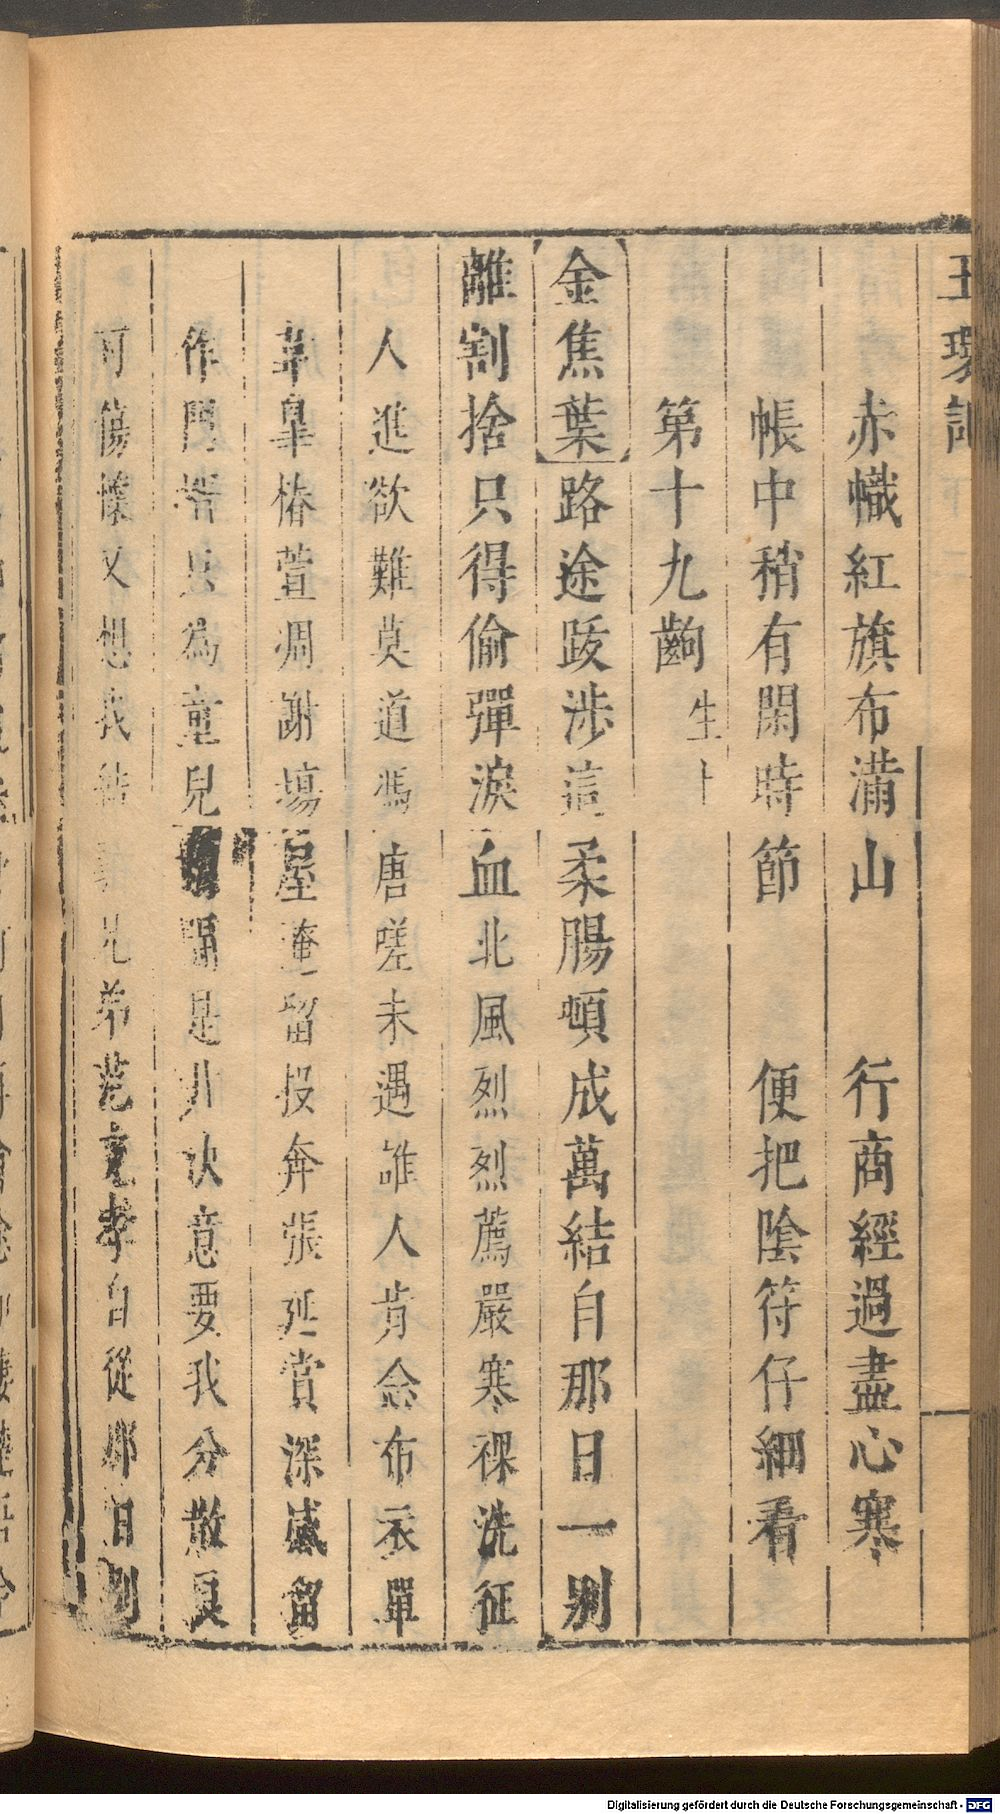 玉環記
赤幟紅旗布滿山 行商經過盡心寒
帳中稍有閑時節 便把陰符仔細看
第十九齣 生上
金焦葉路途跋涉這柔腸頓成萬結自那日一別
離割捨只得偷彈淚血北風烈烈薦嚴寒裸洗征
人進欲難莫道馮唐嗟未遇誰人肯念布衣單
韋皐椿萱凋謝塲屋淹留投奔張延賞深感留
作門壻只為童兒 閙是非决意要我分散良
可傷懷又想我結義兄弟范克孝自從那日別
Digitalisierung gefördert durch die Deutsche Forschungsgemeinschaft - DFG